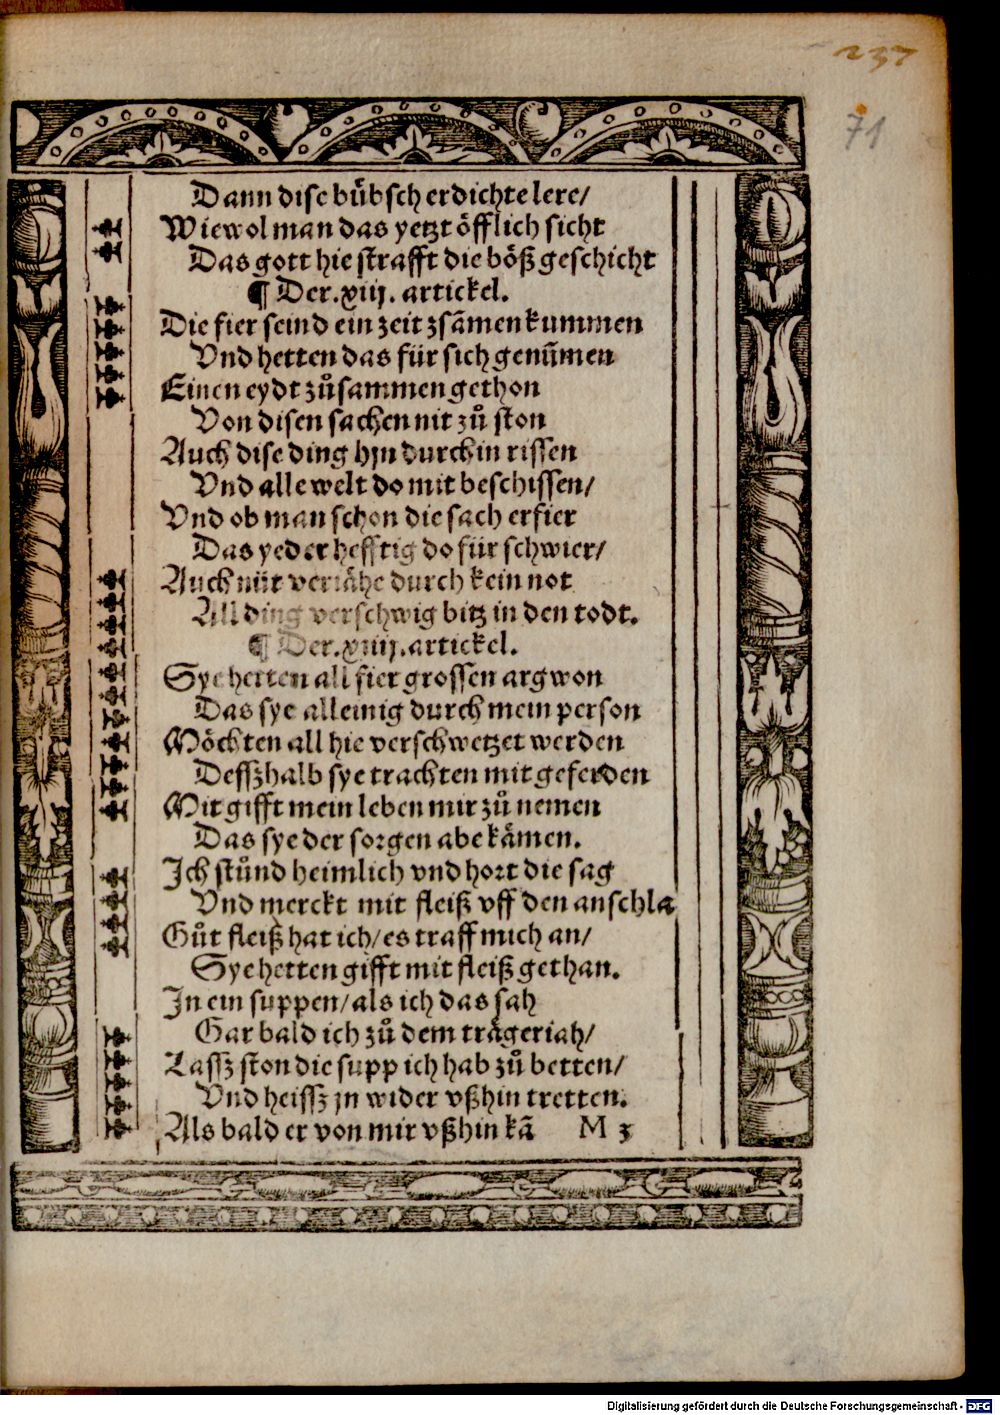 237
71
Dann dise bübsch erdichte lere/
Wiewol man das yetzt öfflich sicht
Das gott hie strafft die böß geschicht
¶ Der .xiij. artickel.
Die fier seind ein zeit zsãmen kummen
Vnd hetten das für sich genũmen
Einen eydt zůsammen gethon
Von disen sachen nit zů ston
Auch dise ding hin durchin rissen
Vnd alle welt do mit beschissen/
Vnd ob man schon die sach erfier
Das yeder hefftig do für schwier/
Auch nüt veriähe durch kein not
All ding verschwig bitz in den todt.
¶ Der .xiiij. artickel.
Sye hetten all fier grossen argwon
Das sye alleinig durch mein person
Möchten all hie verschwetzet werden
Deſſzhalb sye trachten mit geferden
Mit gifft mein leben mir zů nemen
Das sye der sorgen abe kämen.
Ich stůnd heimlich vnd hort die sag
Vnd merckt mit fleiß vff den anschla
Gůt fleiß hat ich/ es traff mich an/
Sye hetten gifft mit fleiß gethan.
In ein suppen/ als ich das sah
Gar bald ich zů dem träger iah/
Lassz ston die supp ich hab zů betten/
Vnd heissz jn wider vßhin tretten.
Als bald er von mir vßhin kã M 3
Digitalisierung gefördert durch die Deutsche Forschungsgemeinschaft - DFG